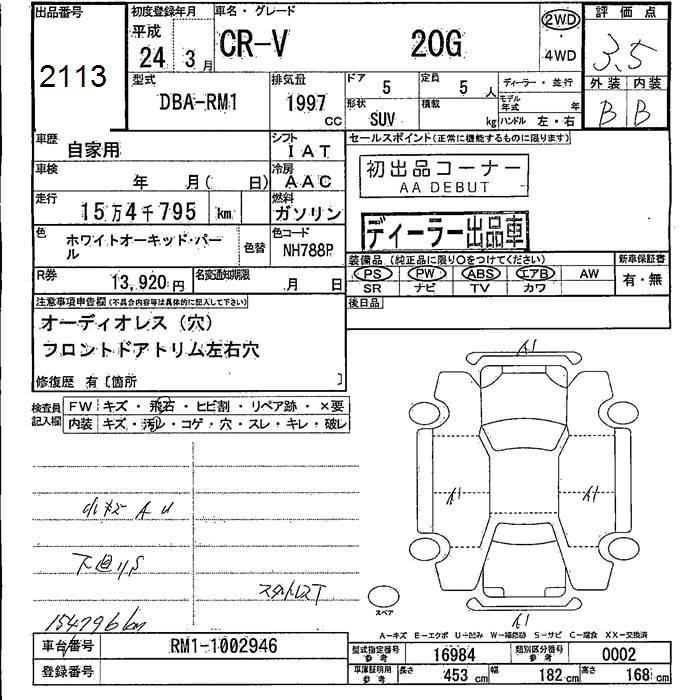 出品番号
2113
初度登録年月
平成
24年3月
車名・グレード
CR-V 20G
2WD
・
4WD
評価点
3.5
外装 内装
B B
型式
DBA-RM1
排気量
1997 CC
ドア
5
定員
5人
形状
SUV
積載
kg
ディーラー・並行
モデル年式 年
ハンドル 左・右
車歴
自家用
シフト
IAT
車検
年 月( 日)
冷房
AAC
走行
15万4千795 km
燃料
ガソリン
色
ホワイトオーキッド・パール
色替
色コード
NH788P
R券
13,920円
名変通知期限
月 日
セールスポイント(正常に機能するものに限ります)
初出品コーナー
AA DEBUT
ディーラー出品車
装備品 (純正品に限り○をつけてください)
PS PW ABS エアB AW
SR ナビ TV カワ
新車保証書
有・無
後日品
注意事項申告欄(不具合内容等は具体的に記入して下さい)
オーディオレス(穴)
フロントドアトリム左右穴
修復歴 有〔箇所 〕
検査員記入欄
FW キズ・飛石・ヒビ割・リペア跡・×要
内装 キズ・汚レ・コゲ・穴・スレ・キレ・破レ
小キズ A U
下廻りS
スタットレスT
154796km
A1
A1
A1
A1
スペア
A−キズ E−エクボ U−凹み W−補修跡 S−サビ C−腐食 XX−交換済
車台番号
RM1-1002946
登録番号
型式指定番号 参考
16984
類別区分番号 参考
0002
車庫証明用 参考
長さ 453 cm 幅 182 cm 高さ 168 cm